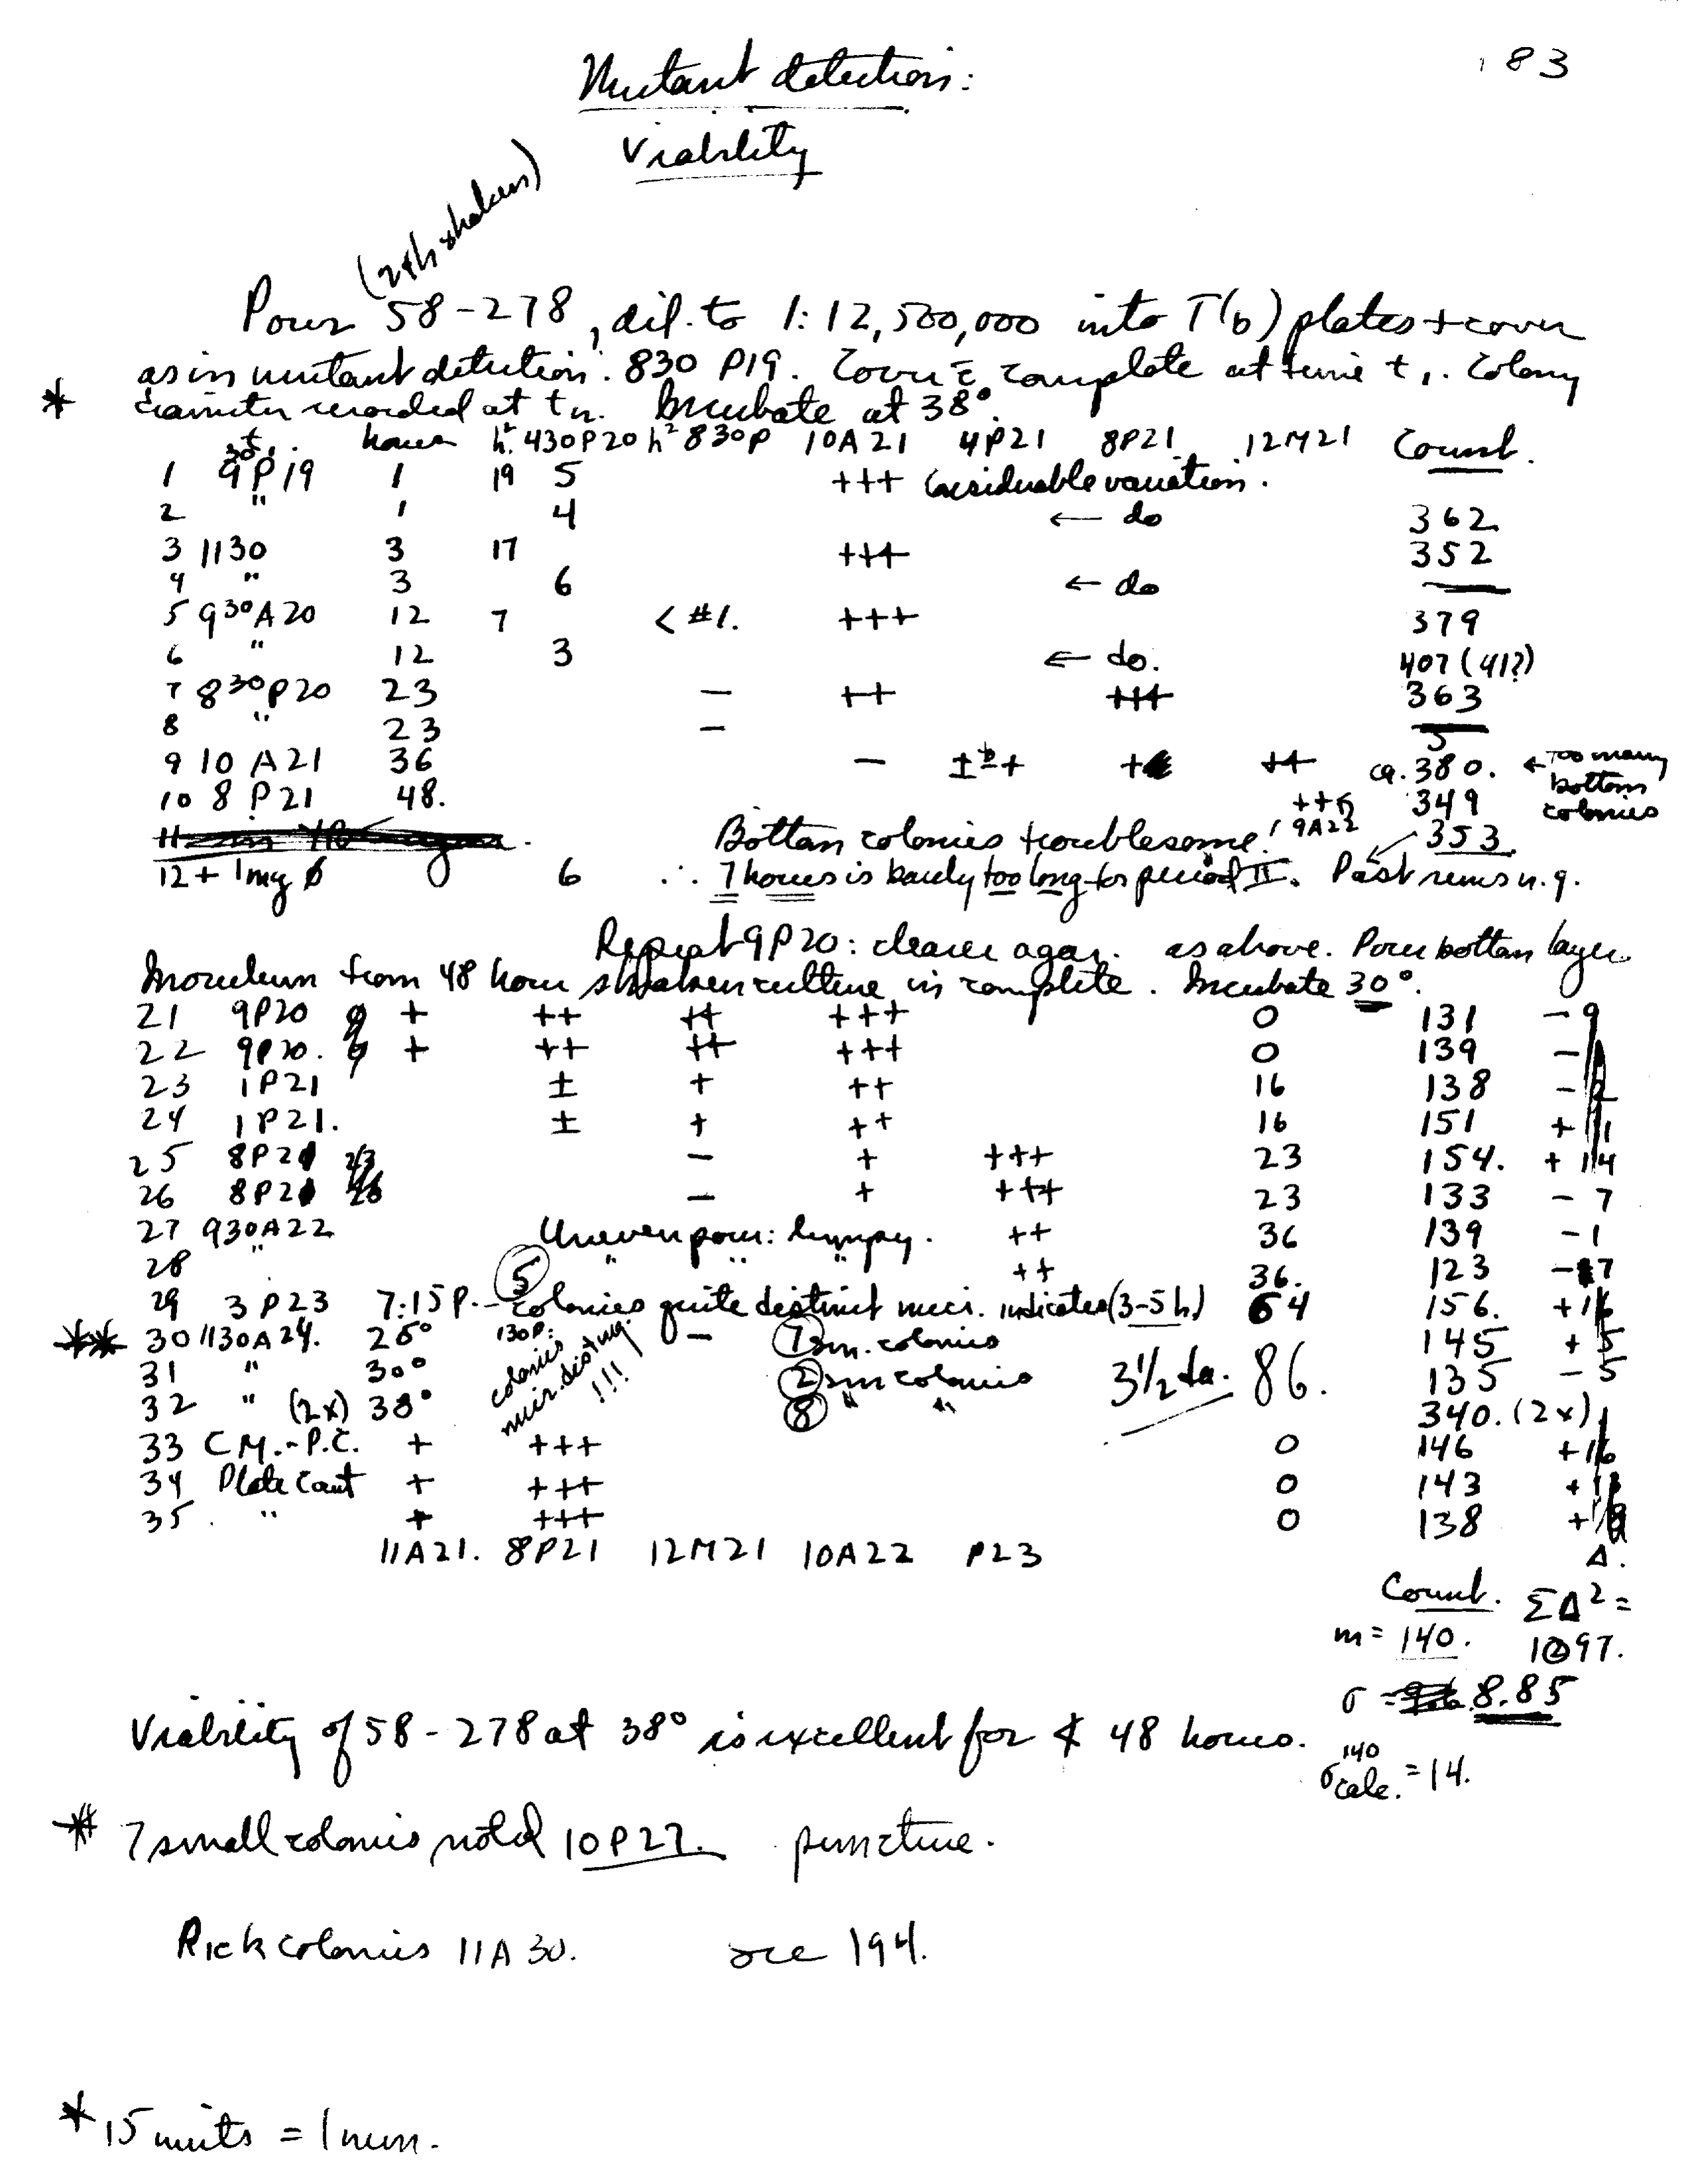 83
Mutant detection:
Viability
(24h shaken)
Pour 58-278, dil. to 1:12,500,000 into T(b) plates + cover
as in mutant detection: 830 P19. Cover c̄ complete at time t1. Colony
* diameter recorded at t2. Incubate at 38°.
t1. hours h. 430P20 h2 830P 10A21 4P21 8P21 12M21 Count.
1 9P19 1 19 5 +++ Considerable variation.
2 " 1 4 ← do 362
3 1130 3 17 +++ 352
4 " 3 6 ← do —
5 930A20 12 7 < #1. +++ 379
6 " 12 3 ← do. 407 (41?)
7 830P20 23 — ++ +++ 363
8 " 23 — —
9 10 A21 36 — ± + + ++ ca. 380. ← too many bottom colonies
10 8 P21 48. ++ 349
9A22 353.
Bottom colonies troublesome!
12 + 1mg 6 ∴ 7 hours is barely too long for period II. Past runs n.g.
Repeat 9P20: clearer agar. as above. Pour bottom layer
Inoculum from 48 hour shaken culture in complete. Incubate 30°.
21 9P20 + ++ ++ +++ 0 131 - 9
22 9P20. + ++ ++ +++ 0 139 -
23 1P21 ± + ++ 16 138 - 2
24 1P21. ± + ++ 16 151 + 11
25 8P21 — + +++ 23 154. + 14
26 8P21 — + +++ 23 133 - 7
27 930A22 Uneven pour: lumpy. ++ 36 139 - 1
28 " " " " ++ 36. 123 - 17
29 3 P23 7:15 P. - (5) colonies quite distinct micr. indicates (3-5 h) 64 156. + 16
** 30 1130A24. 26° 130P: colonies micr. disting. !!! — (7) sm. colonies 145 + 5
31 " 30° (2) sm colonies 3 1/2 da. 86. 135 - 5
32 " (2x) 38° (8) " " 340. (2x)
33 C.M.-P.C. + +++ 0 146 + 16
34 Plate Count + +++ 0 143 + 13
35. " + +++ 0 138 +
11A21. 8P21 12M21 10A22 P23 Δ.
Count. ΣΔ2 =
m = 140. 1097.
σ = 8.85
Viability of 58-278 at 38° is excellent for ≮ 48 hours.
140
σ calc. = 14.
** 7 small colonies noted 10P27. puncture.
Pick colonies 11A30. see 194.
* 15 units = 1 mm.